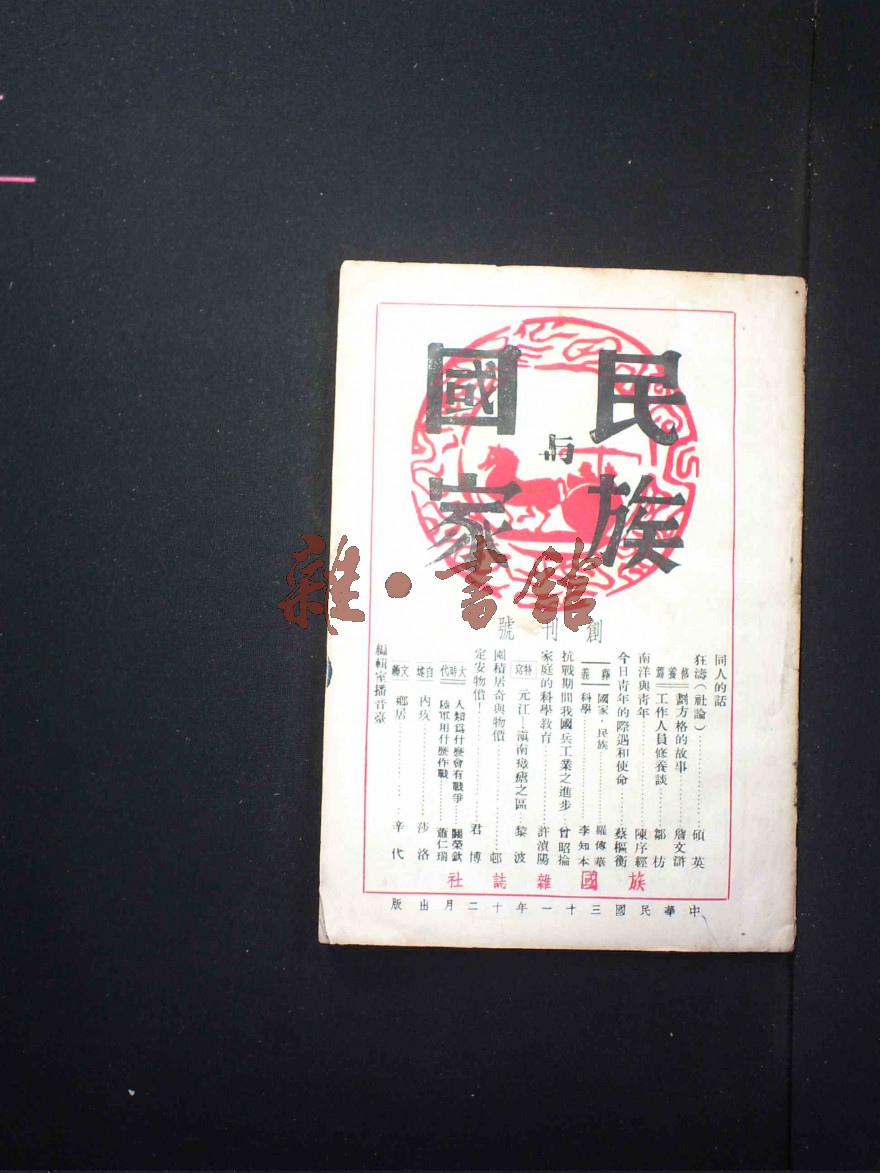 民族
与
國家
創刊號
同人的話
狂濤(社論)………碩英
修養篇
劃方格的故事………詹文滸
工作人員修養談………鄒枋
南洋與青年………陳序經
今日青年的際遇和使命………蔡樞衡
釋義
國家・民族………羅傳華
科學………李知本
抗戰期間我國兵工業之進步………曾昭掄
家庭的科學教育………許湞陽
特寫
元江—滇南瘴瘧之區………黎波
囤積居奇與物價………邨
定安物價!………君博
大時代
人類爲什麼會有戰爭………關榮欽
陸軍用什麼作戰………蕭仁瑞
自域
內疚………莎洛
文藝
鄉居………辛代
編輯室播音臺
族國雜誌社
中華民國三十一年十二月出版
雜・書館